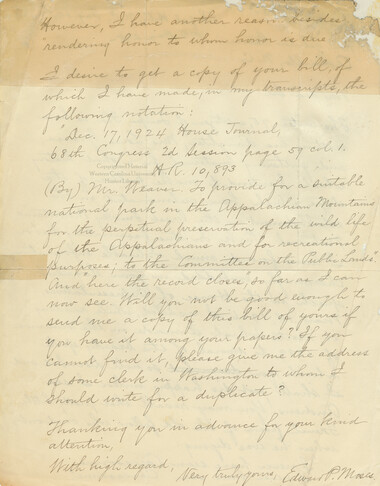 However, I have another reason besides
rendering honor to whom honor is due.
I desire to get a copy of your bill, of
which I have made, in my transcripts, the
following notation:
"Dec. 17, 1924 House Journal,
68th Congress 2d Session page 59 col. 1.
H.R. 10,893
(By) Mr. Weaver. To provide for a suitable
national park in the Appalachian Mountains
for the perpetual preservation of the wild life
of the Appalachians and for recreational
purposes; to the Committee on the Public Lands."
And "here the record closes", so far as I can
now see. Will you not be good enough to
send me a copy of this bill of yours if
you have it among your papers? If you
cannot find it, please give me the address
of some clerk in Washington to whom I
should write for a duplicate?
Thanking you in advance for your kind
attention,
With high regard,
Very truly yours,